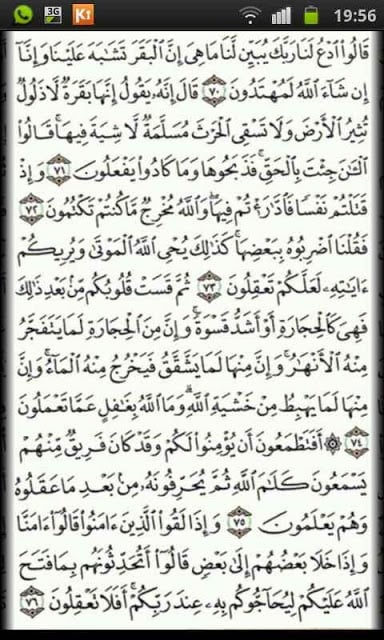 K1 19:56
قَالُوا۟ ٱدْعُ لَنَا رَبَّكَ يُبَيِّن لَّنَا مَا هِىَ إِنَّ ٱلْبَقَرَ تَشَٰبَهَ عَلَيْنَا وَإِنَّآ
إِن شَآءَ ٱللَّهُ لَمُهْتَدُونَ ٧٠ قَالَ إِنَّهُۥ يَقُولُ إِنَّهَا بَقَرَةٌ لَّا ذَلُولٌ
تُثِيرُ ٱلْأَرْضَ وَلَا تَسْقِى ٱلْحَرْثَ مُسَلَّمَةٌ لَّا شِيَةَ فِيهَا ۚ قَالُوا۟
ٱلْـَٰٔنَ جِئْتَ بِٱلْحَقِّ ۚ فَذَبَحُوهَا وَمَا كَادُوا۟ يَفْعَلُونَ ٧١ وَإِذْ
قَتَلْتُمْ نَفْسًا فَٱدَّٰرَْٰٔتُمْ فِيهَا ۖ وَٱللَّهُ مُخْرِجٌ مَّا كُنتُمْ تَكْتُمُونَ ٧٢
فَقُلْنَا ٱضْرِبُوهُ بِبَعْضِهَا ۚ كَذَٰلِكَ يُحْىِ ٱللَّهُ ٱلْمَوْتَىٰ وَيُرِيكُمْ
ءَايَٰتِهِۦ لَعَلَّكُمْ تَعْقِلُونَ ٧٣ ثُمَّ قَسَتْ قُلُوبُكُم مِّنۢ بَعْدِ ذَٰلِكَ
فَهِىَ كَٱلْحِجَارَةِ أَوْ أَشَدُّ قَسْوَةً ۚ وَإِنَّ مِنَ ٱلْحِجَارَةِ لَمَا يَتَفَجَّرُ
مِنْهُ ٱلْأَنْهَٰرُ ۚ وَإِنَّ مِنْهَا لَمَا يَشَّقَّقُ فَيَخْرُجُ مِنْهُ ٱلْمَآءُ ۚ وَإِنَّ
مِنْهَا لَمَا يَهْبِطُ مِنْ خَشْيَةِ ٱللَّهِ ۗ وَمَا ٱللَّهُ بِغَٰفِلٍ عَمَّا تَعْمَلُونَ
٧٤ ۞ أَفَتَطْمَعُونَ أَن يُؤْمِنُوا۟ لَكُمْ وَقَدْ كَانَ فَرِيقٌ مِّنْهُمْ
يَسْمَعُونَ كَلَٰمَ ٱللَّهِ ثُمَّ يُحَرِّفُونَهُۥ مِنۢ بَعْدِ مَا عَقَلُوهُ
وَهُمْ يَعْلَمُونَ ٧٥ وَإِذَا لَقُوا۟ ٱلَّذِينَ ءَامَنُوا۟ قَالُوٓا۟ ءَامَنَّا
وَإِذَا خَلَا بَعْضُهُمْ إِلَىٰ بَعْضٍ قَالُوٓا۟ أَتُحَدِّثُونَهُم بِمَا فَتَحَ
ٱللَّهُ عَلَيْكُمْ لِيُحَآجُّوكُم بِهِۦ عِندَ رَبِّكُمْ ۚ أَفَلَا تَعْقِلُونَ ٧٦